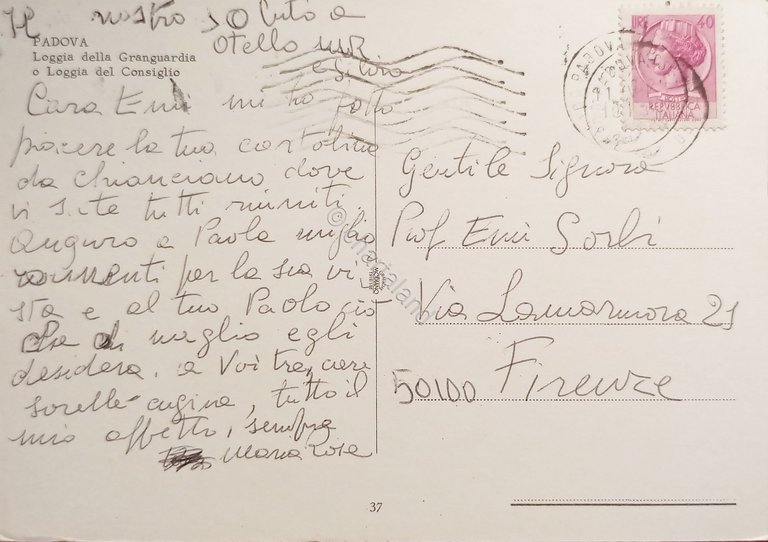 Il nostro saluto a
Otello
e Silvia
PADOVA
Loggia della Granguardia
o Loggia del Consiglio
Cara Emi mi ha fatto
piacere la tua cartolina
da Chianciano dove
vi siete tutti riuniti.
Auguro a Paola miglio
ramenti per la sua vi
sta e al tuo Paolo ciò
che di meglio egli
desidera. a Voi tre, care
sorelle cugine, tutto il
mio affetto, sempre
Maria Rosa
LIRE 40
REPUBBLICA
ITALIANA
PADOVA
Gentile Signora
Prof Emi Sorbi
Via Lamarmora 21
50100 Firenze
37